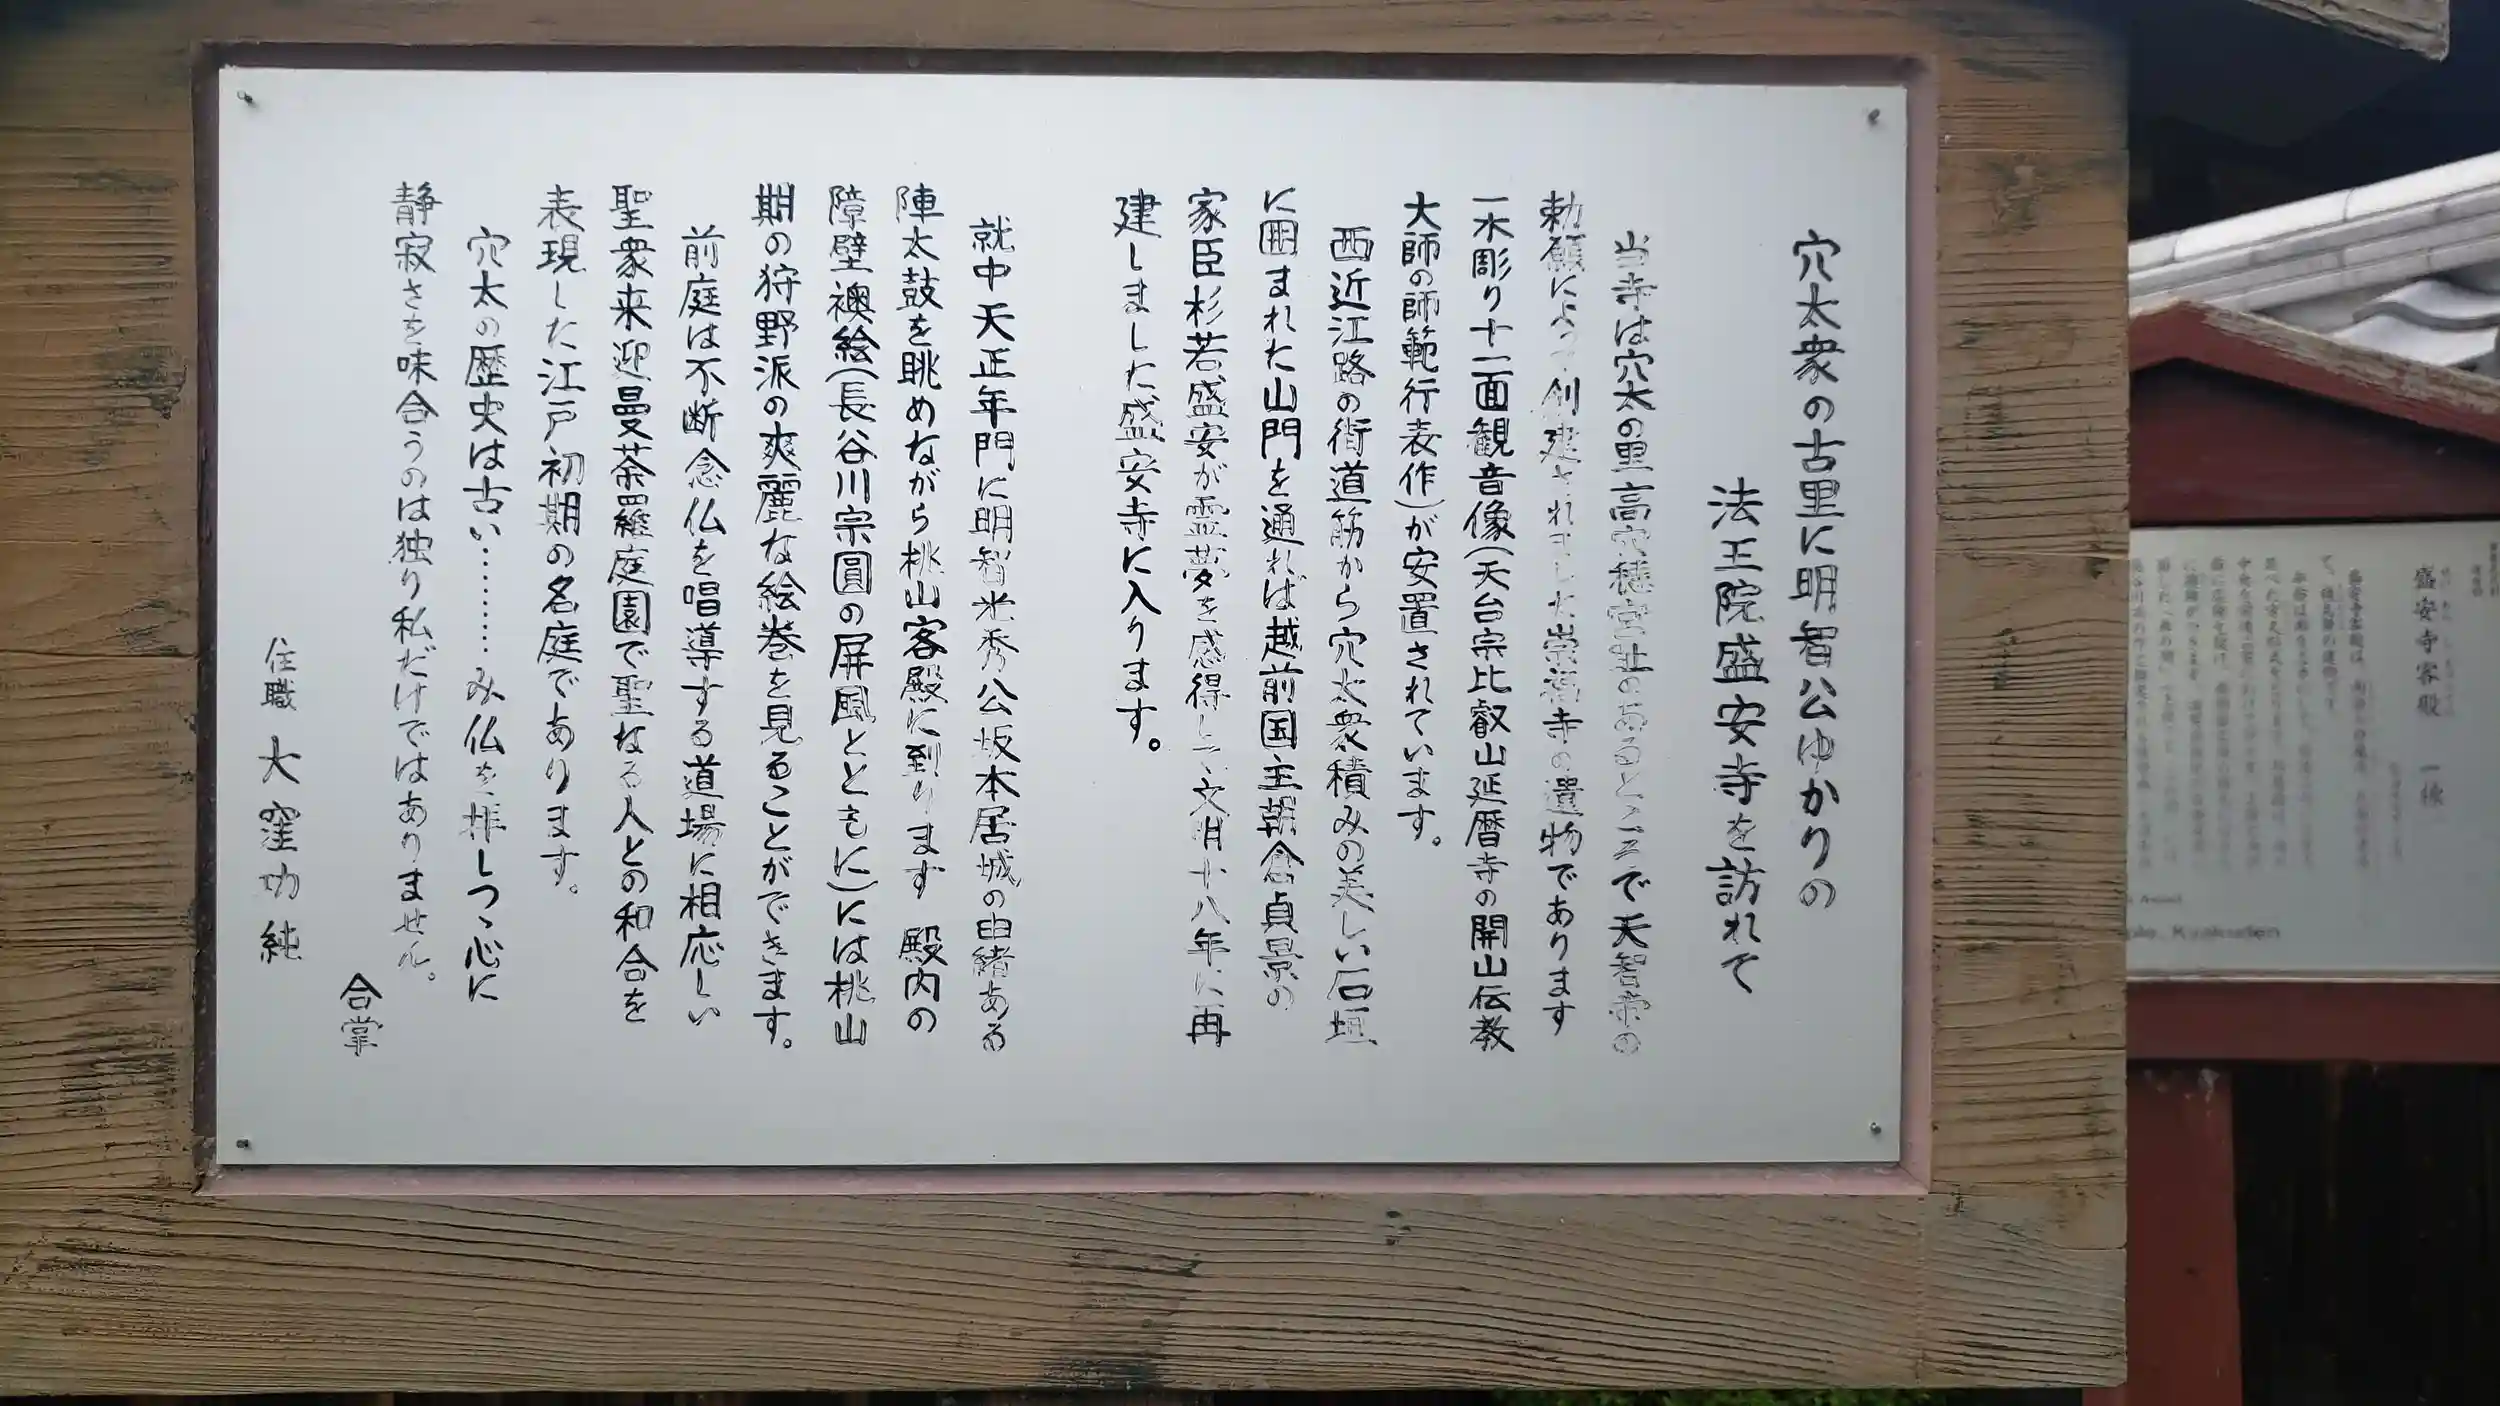 穴太衆の古里に明智公ゆかりの
法王院盛安寺を訪れて
当寺は穴太の里高穴穂宮址のあるところで天智帝の
勅願によって創建されました崇福寺の遺物であります
一木彫り十一面観音像(天台宗比叡山延暦寺の開山伝教
大師の師範行表作)が安置されています。
西近江路の街道筋から穴太衆積みの美しい石垣
に囲まれた山門を通れば越前国主朝倉貞景の
家臣杉若盛安が霊夢を感得して文明十八年に再
建しました盛安寺に入ります。
就中天正年間に明智光秀公坂本居城の由緒ある
陣太鼓を眺めながら桃山客殿に到ります 殿内の
障壁襖絵(長谷川宗圓の屏風とともに)には桃山
期の狩野派の爽麗な絵巻を見ることができます。
前庭は不断念仏を唱導する道場に相応しい
聖衆来迎曼荼羅庭園で聖なる人との和合を
表現した江戸初期の名庭であります。
穴太の歴史は古い………み仏を拝しつゝ心に
静寂さを味合うのは独り私だけではありません。
合掌
住職 大窪功純
盛安寺客殿 一棟